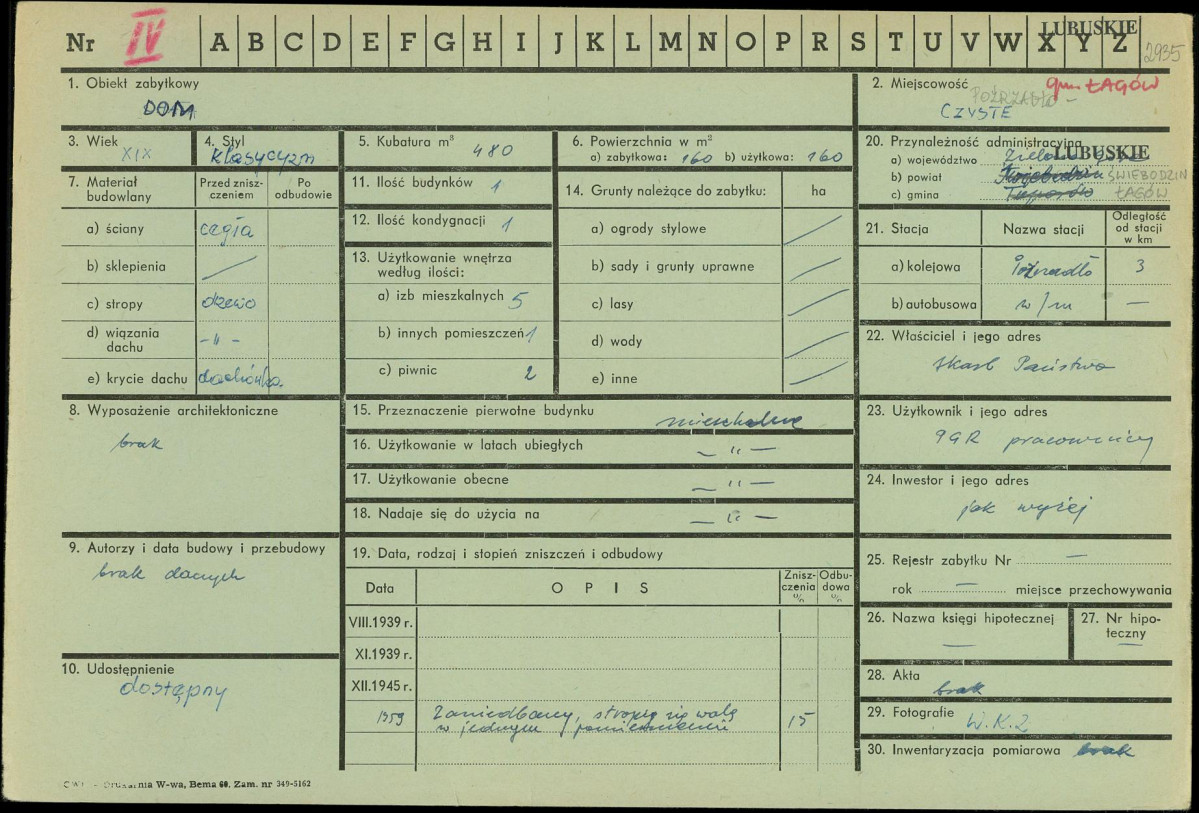 LUBUSKIE
Nr IV A B C D E F G H I J K L M N O P R S T U V W X Y Z 2935
1. Obiekt zabytkowy
DOM
2. Miejscowość gm. ŁAGÓW
POŹRZADŁO -
CZYSTE
3. Wiek
XIX
4. Styl
klasycyzm
5. Kubatura m³ 480
6. Powierzchnia w m²
a) zabytkowa: 160 b) użytkowa: 160
20. Przynależność administracyjna
LUBUSKIE
a) województwo Zielona Góra
b) powiat Świebodzin ŚWIEBODZIN
c) gmina ŁAGÓW
7. Materiał budowlany
Przed zniszczeniem
Po odbudowie
a) ściany cegła
b) sklepienia
c) stropy drzewo
d) wiązania dachu -"-
e) krycie dachu dachówka
11. Ilość budynków 1
12. Ilość kondygnacji 1
13. Użytkowanie wnętrza
według ilości:
a) izb mieszkalnych 5
b) innych pomieszczeń 1
c) piwnic 2
14. Grunty należące do zabytku: ha
a) ogrody stylowe
b) sady i grunty uprawne
c) lasy
d) wody
e) inne
21. Stacja
Nazwa stacji
Odległość od stacji w km
a) kolejowa Poźrzadło 3
b) autobusowa w/m —
22. Właściciel i jego adres
Skarb Państwa
8. Wyposażenie architektoniczne
brak
15. Przeznaczenie pierwotne budynku mieszkalne
16. Użytkowanie w latach ubiegłych — " —
17. Użytkowanie obecne — " —
18. Nadaje się do użycia na — " —
23. Użytkownik i jego adres
PGR pracownicy
24. Inwestor i jego adres
jak wyżej
9. Autorzy i data budowy i przebudowy
brak danych
19. Data, rodzaj i stopień zniszczeń i odbudowy
Data
OPIS
Zniszczenia %
Odbudowa %
VIII.1939 r.
XI.1939 r.
XII.1945 r.
1959 Zaniedbany, stropy się walą 15
w jednym pomieszczeniu
25. Rejestr zabytku Nr —
rok — miejsce przechowywania
26. Nazwa księgi hipotecznej
—
27. Nr hipoteczny
—
10. Udostępnienie
dostępny
28. Akta
brak
29. Fotografie W.K.Z
30. Inwentaryzacja pomiarowa brak
Drukarnia W-wa, Bema 60. Zam. nr 349-5162